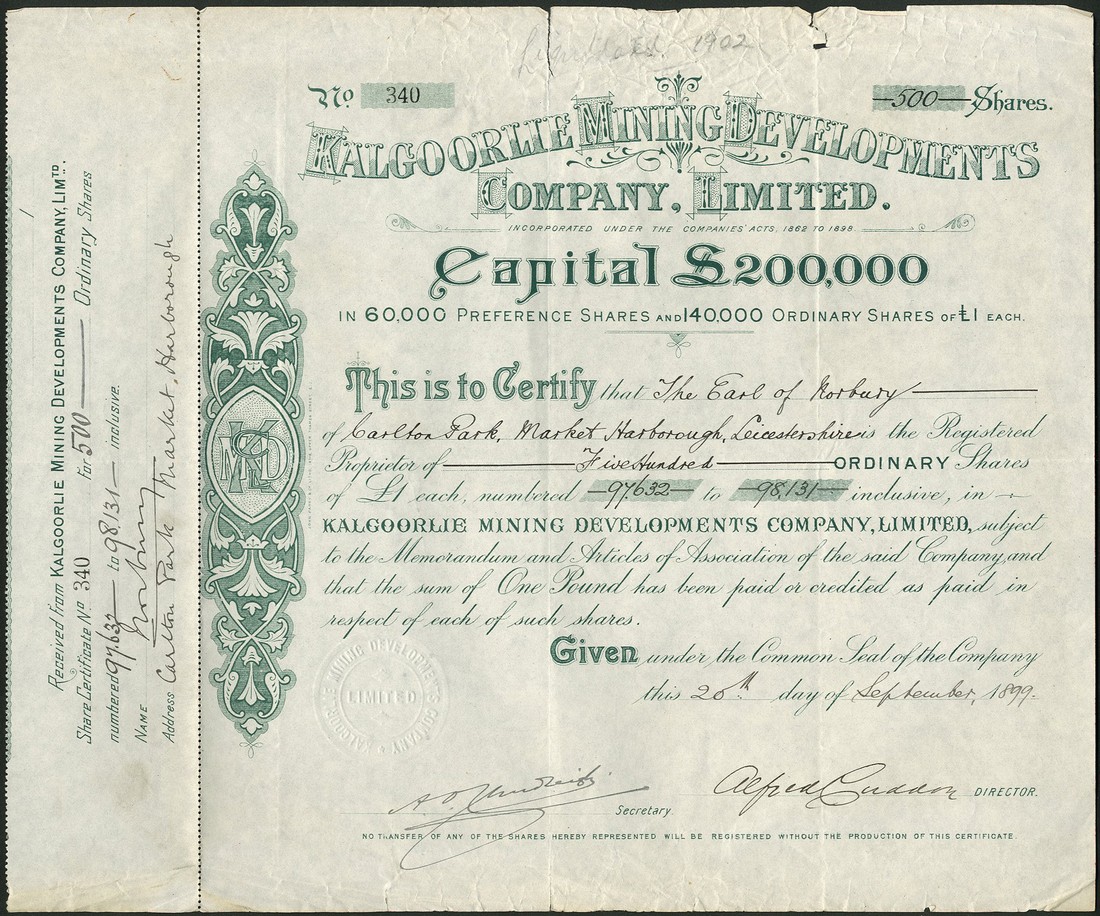 Liquidated. 1902
No 340
500 Shares.
KALGOORLIE MINING DEVELOPMENTS
COMPANY, LIMITED.
INCORPORATED UNDER THE COMPANIES' ACTS, 1862 TO 1898
Capital £200,000
IN 60,000 PREFERENCE SHARES AND 140,000 ORDINARY SHARES OF £1 EACH.
This is to Certify that The Earl of Norbury
of Carlton Park, Market Harborough, Leicestershire is the Registered
Proprietor of Five Hundred ORDINARY Shares
of £1 each, numbered 97632 to 98,131 inclusive, in
KALGOORLIE MINING DEVELOPMENTS COMPANY, LIMITED, subject
to the Memorandum and Articles of Association of the said Company, and
that the sum of One Pound has been paid or credited as paid in
respect of each of such shares.
Given under the Common Seal of the Company
this 20th day of September, 1899.
KALGOORLIE MINING DEVELOPMENTS COMPANY
LIMITED
Secretary.
Alfred Cuddon DIRECTOR.
NO TRANSFER OF ANY OF THE SHARES HEREBY REPRESENTED WILL BE REGISTERED WITHOUT THE PRODUCTION OF THIS CERTIFICATE.
Received from KALGOORLIE MINING DEVELOPMENTS COMPANY, LIMTD.
Share Certificate No 340 for 500 Ordinary Shares
numbered 97632 to 98,131 inclusive.
NAME Norbury
Address Carlton Park Market Harborough